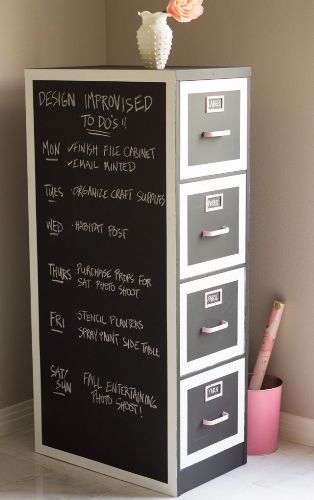 DESIGN IMPROVISED
TO DO'S!!
MON ✓FINISH FILE CABINET
✓EMAIL MINTED
TUES · ORGANIZE CRAFT SUPPLIES
WED · HABITAT POST
THURS · PURCHASE PROPS FOR
SAT. PHOTO SHOOT
FRI · STENCIL PLANTERS
SPRAY PAINT SIDE TABLE
SAT/
SUN FALL ENTERTAINING
PHOTO SHOOT!
LABELS
PAPER